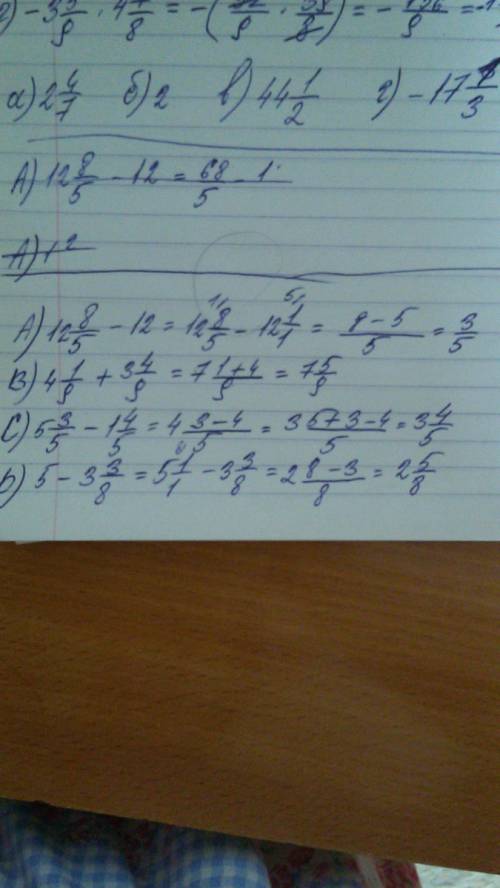 г) -3 5/9 · 4 7/8 = -(32/9 · 39/8) = -156/9 =
а) 2 4/7 б) 2 в) 44 1/2 г) -17 1/3
А) 12 8/5 - 12 = 68/5 - 1
А) 1 2
А) 12 8/5 - 12 = 12 8/5 - 12 1/1 = 8-5/5 = 3/5
В) 4 1/9 + 3 4/9 = 7 1+4/9 = 7 5/9
С) 5 3/5 - 1 4/5 = 4 3-4/5 = 3 5+3-4/5 = 3 4/5
D) 5 - 3 3/8 = 5 1/1 - 3 3/8 = 2 8-3/8 = 2 5/8